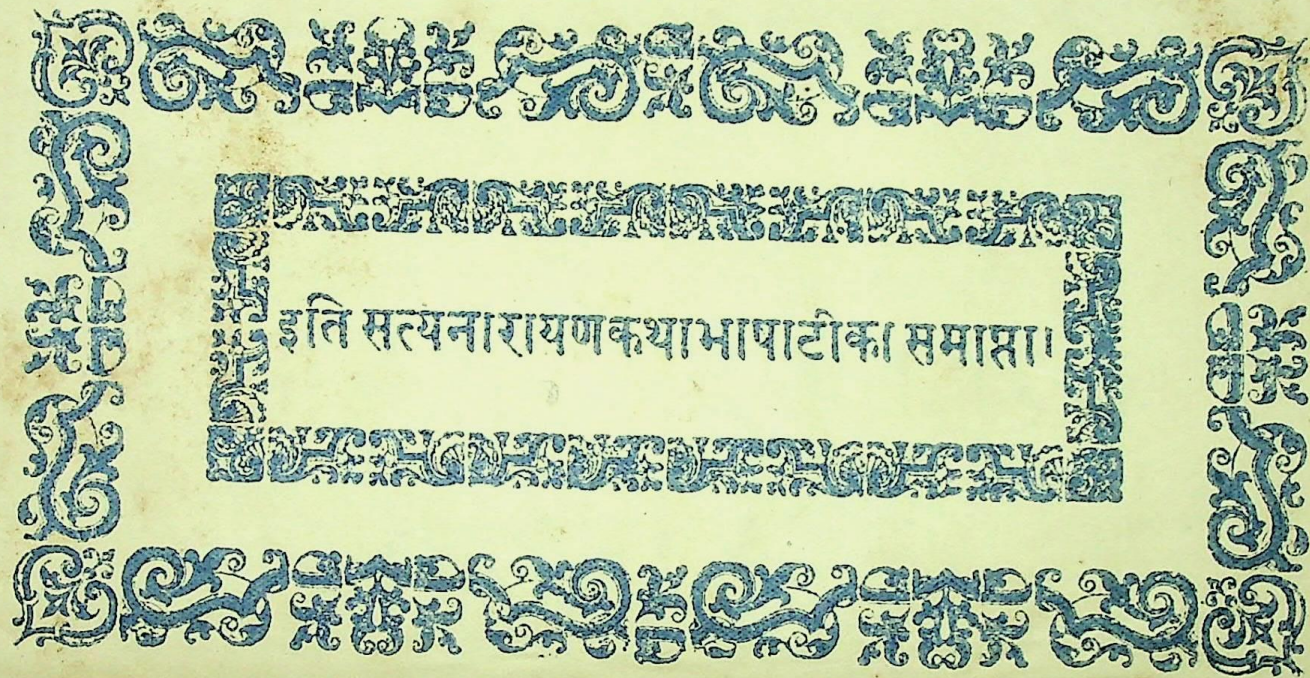 इति सत्यनारायणकथाभाषाटीका समाप्ता।